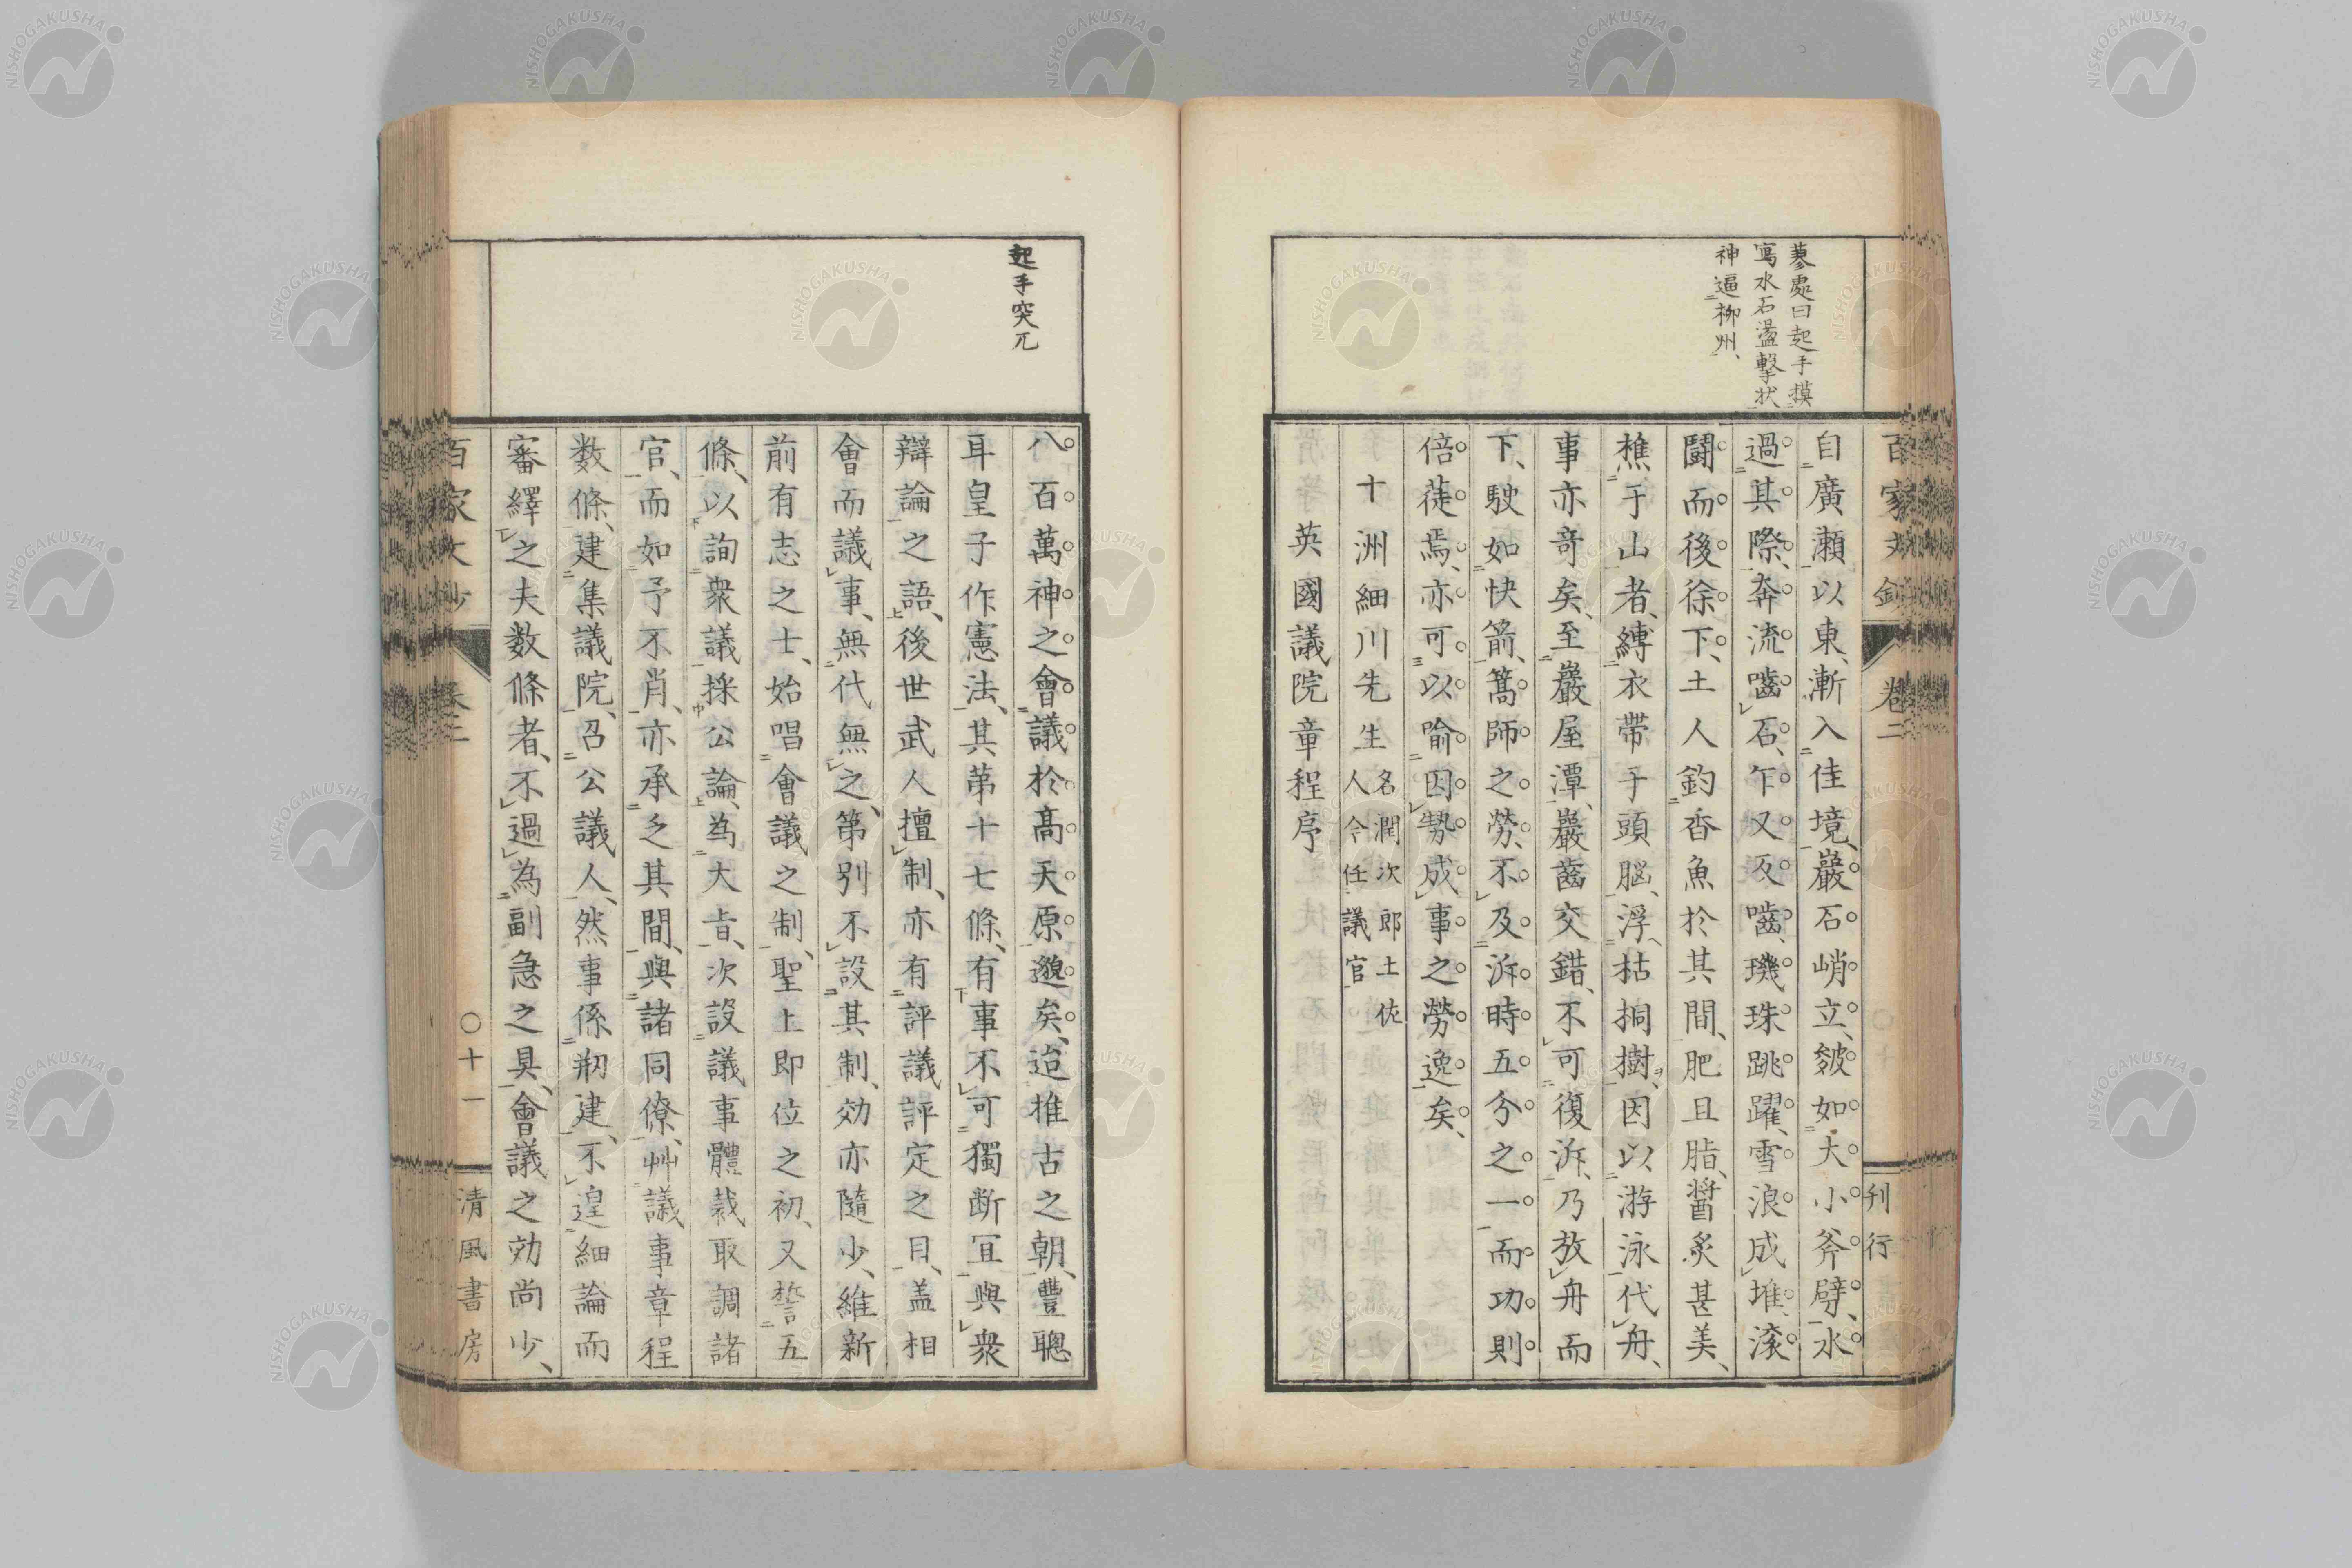 蓼處曰起手摸
寫水石盪擊狀
神逼柳州、
自廣瀬以東、漸入佳境、巖石峭立、皴如大小斧劈、水
過其際、奔流嚙石、乍又反嚙、璣珠跳躍、雪浪成堆、滚
鬪而後徐下、土人釣香魚於其間、肥且脂、醤炙甚美、
樵于山者、縛衣帶于頭腦、浮枯桐樹、因以游泳代舟、
事亦竒矣、至巖屋潭、巖齒交錯、不可復泝、乃放舟而
下、駛如快箭、篙師之勞、不及泝時五分之一、而功則
倍蓰焉、亦可以喻因勢成事之勞逸矣、
十洲細川先生
名潤次郎土佐
人今任議官
英國議院章程序
百家文鈔
卷二
刋行
起手突兀
八百萬神之會議於髙天原邈矣、迨推古之朝、豐聰
耳皇子作憲法、其苐十七條、有事不可獨断冝與衆
辯論之語、後世武人擅制、亦有評議評定之目、盖相
會而議事、無代無之、第別不設其制、効亦隨少、維新
前有志之士、始唱會議之制、聖上即位之初、又誓五
條、以詢衆議採公論、為大㫖、次設議事體裁取調諸
官、而如予不肖、亦承乏其間、與諸同僚、艸議事章程
数條、建集議院、召公議人、然事係剏建、不遑細論而
審繹之夫数條者、不過為副急之具、會議之効尚少、
百家文鈔
卷二
〇十一
清風書房